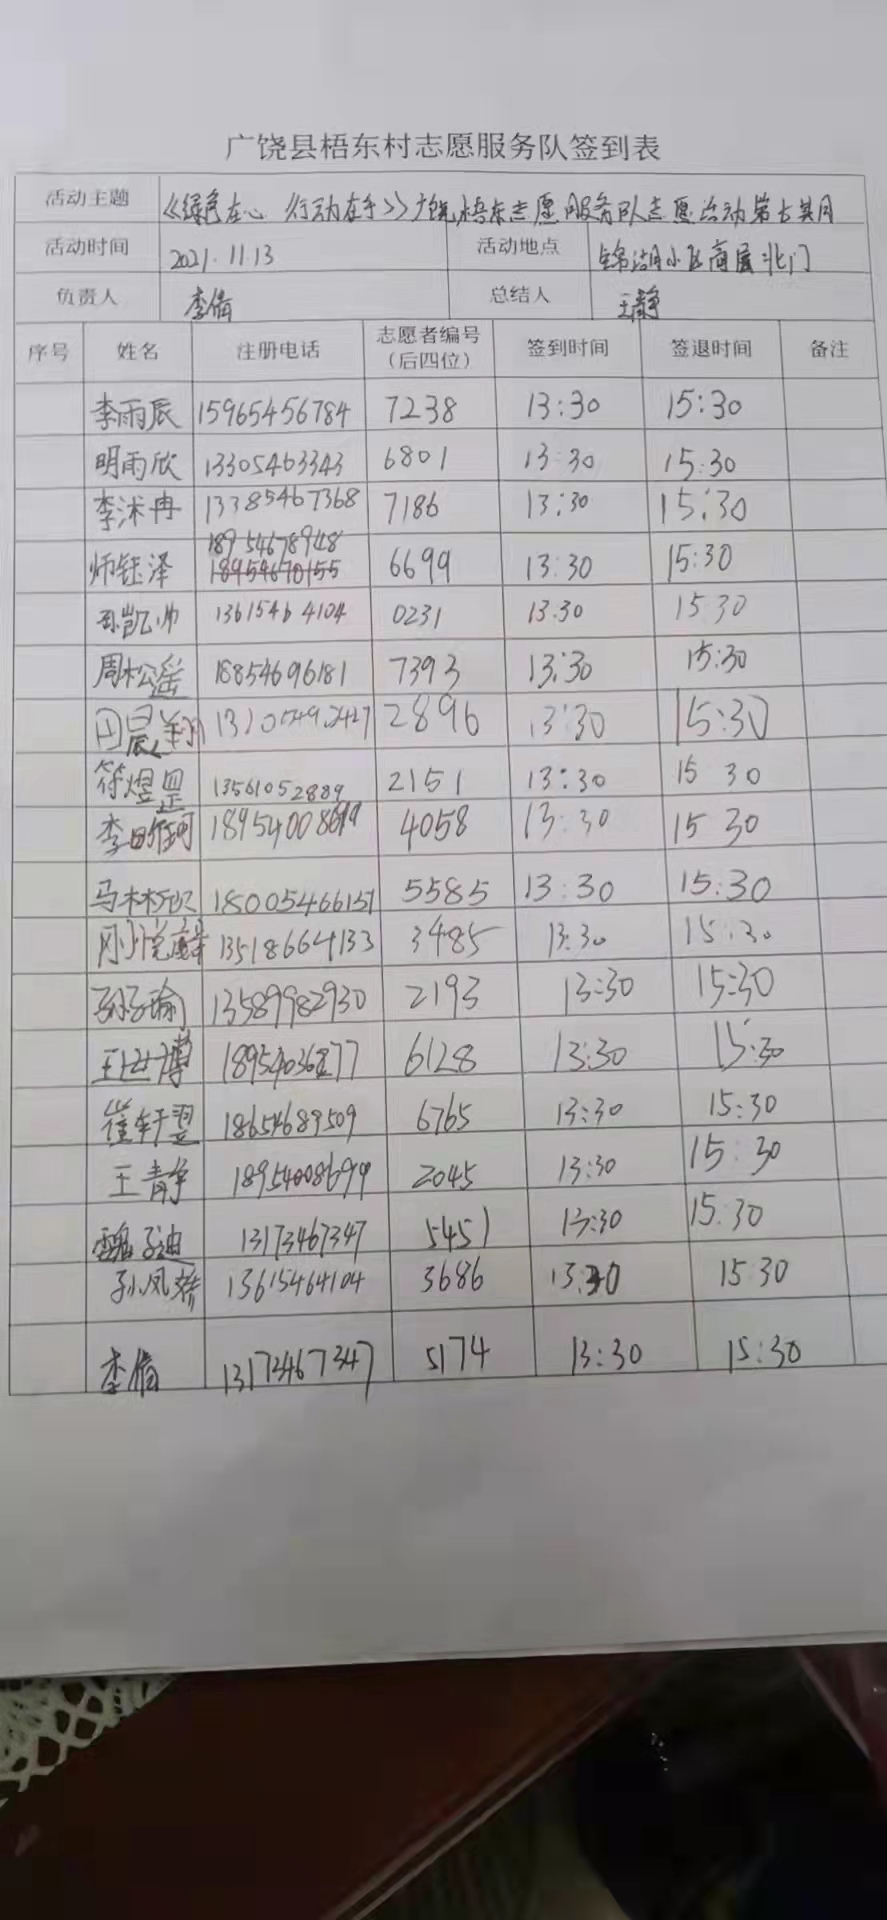 广饶县梧东村志愿服务队签到表
活动主题 《绿色在心 行动在手》广饶梧东志愿服务队志愿活动第七期
活动时间 2021.11.13 活动地点 锦湖小区商厦北门
负责人 李倩 总结人 王静
序号 姓名 注册电话 志愿者编号(后四位) 签到时间 签退时间 备注
李雨辰 15965456784 7238 13:30 15:30
明雨欣 13305463343 6801 13:30 15:30
李沭冉 13385467368 7186 13:30 15:30
师钰泽 18954678948 6699 13:30 15:30
孙凯帅 13615464104 0231 13:30 15:30
周松遥 18854696181 7393 13:30 15:30
田晨翔 2896 13:30 15:30
符煜罡 13561052889 2151 13:30 15:30
李 4058 13:30 15:30
马林欣 18005466151 5585 13:30 15:30
刚悦 13518664133 3485 13:30 15:30
孙子瑜 13589982930 2193 13:30 15:30
王世博 6128 13:30 15:30
崔轩翌 18654689509 6765 13:30 15:30
王静 18954008699 2045 13:30 15:30
魏子迪 13173467347 5451 13:30 15:30
孙凤 13615464104 3686 13:30 15:30
李倩 13173467347 5174 13:30 15:30